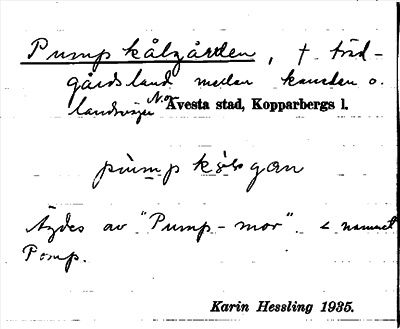 Pumpkålgården, † träd-
gårdsland mellan kanalen o.
landsvägen N.o.
Avesta stad, Kopparbergs l.
pump
Ägdes av "Pump-mor". < namnet
Pomp.
Karin Hessling 1935.